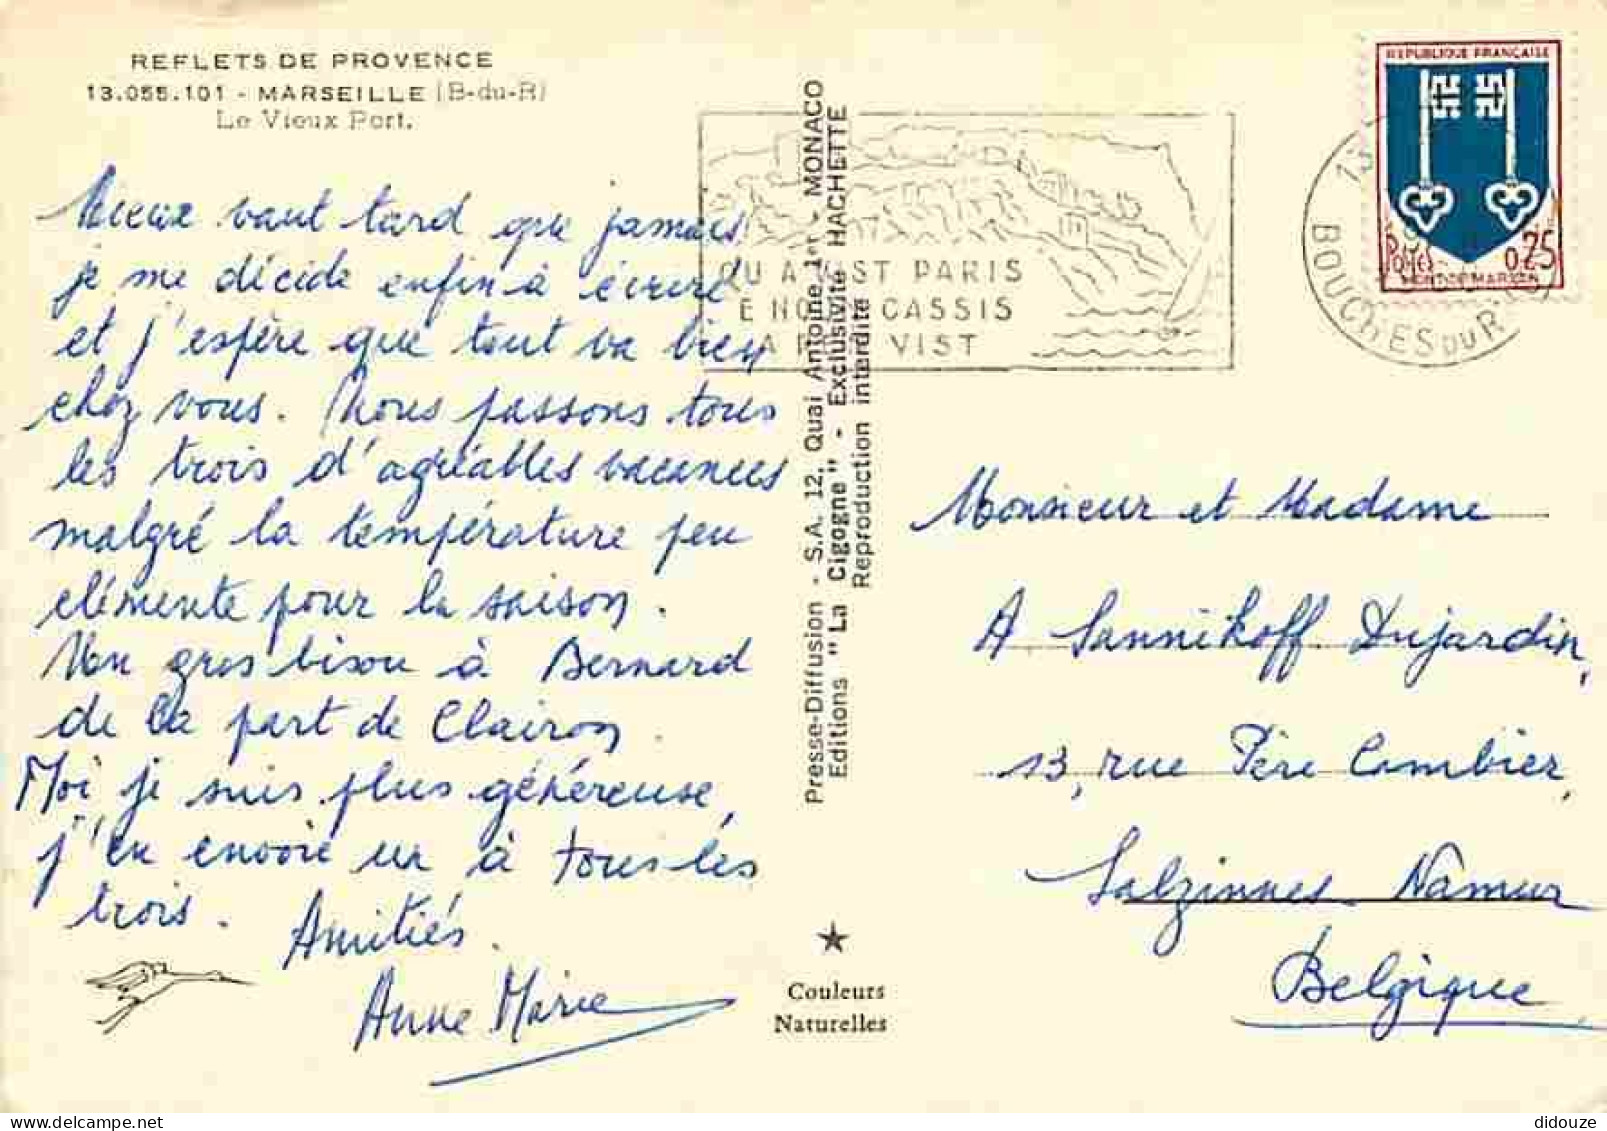 REFLETS DE PROVENCE
13.055.101 - MARSEILLE (B-du-R)
Le Vieux Port.
Mieux vaut tard que jamais
je me décide enfin à écrire
et j'espère que tout va bien
chez vous. Nous passons tous
les trois d'agréables vacances
malgré la température peu
clémente pour la saison.
Un gros bisou à Bernard
de la part de Clairon.
Moi, je suis plus généreuse,
j'en envoie un à tous les
trois.
Amitiés.
Anne Marie
Presse-Diffusion - S.A. 12, Quai Antoine 1er - MONACO
Editions "La Cigogne" - Exclusivité HACHETTE
Reproduction interdite
Couleurs
Naturelles
QU A VIST PARIS
E NOUN CASSIS
VIST
13
BOUCHES DU R
REPUBLIQUE FRANÇAISE
0,25
POSTES
MONT-DE-MARSAN
Monsieur et Madame
A Sannikoff Dujardin,
13, rue Père Cambier,
Salzinnes Namur
Belgique
didouze